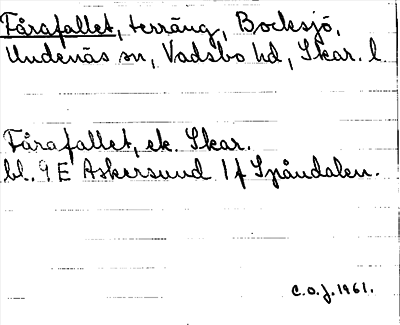 Fårafallet, terräng, Bocksjö,
Undenäs sn, Vadsbo hd, Skar. l
Fårafallet, ek. Skar.
bl. 9 E Askersund 1 f Spåndalen.
C.O.J. 1961.